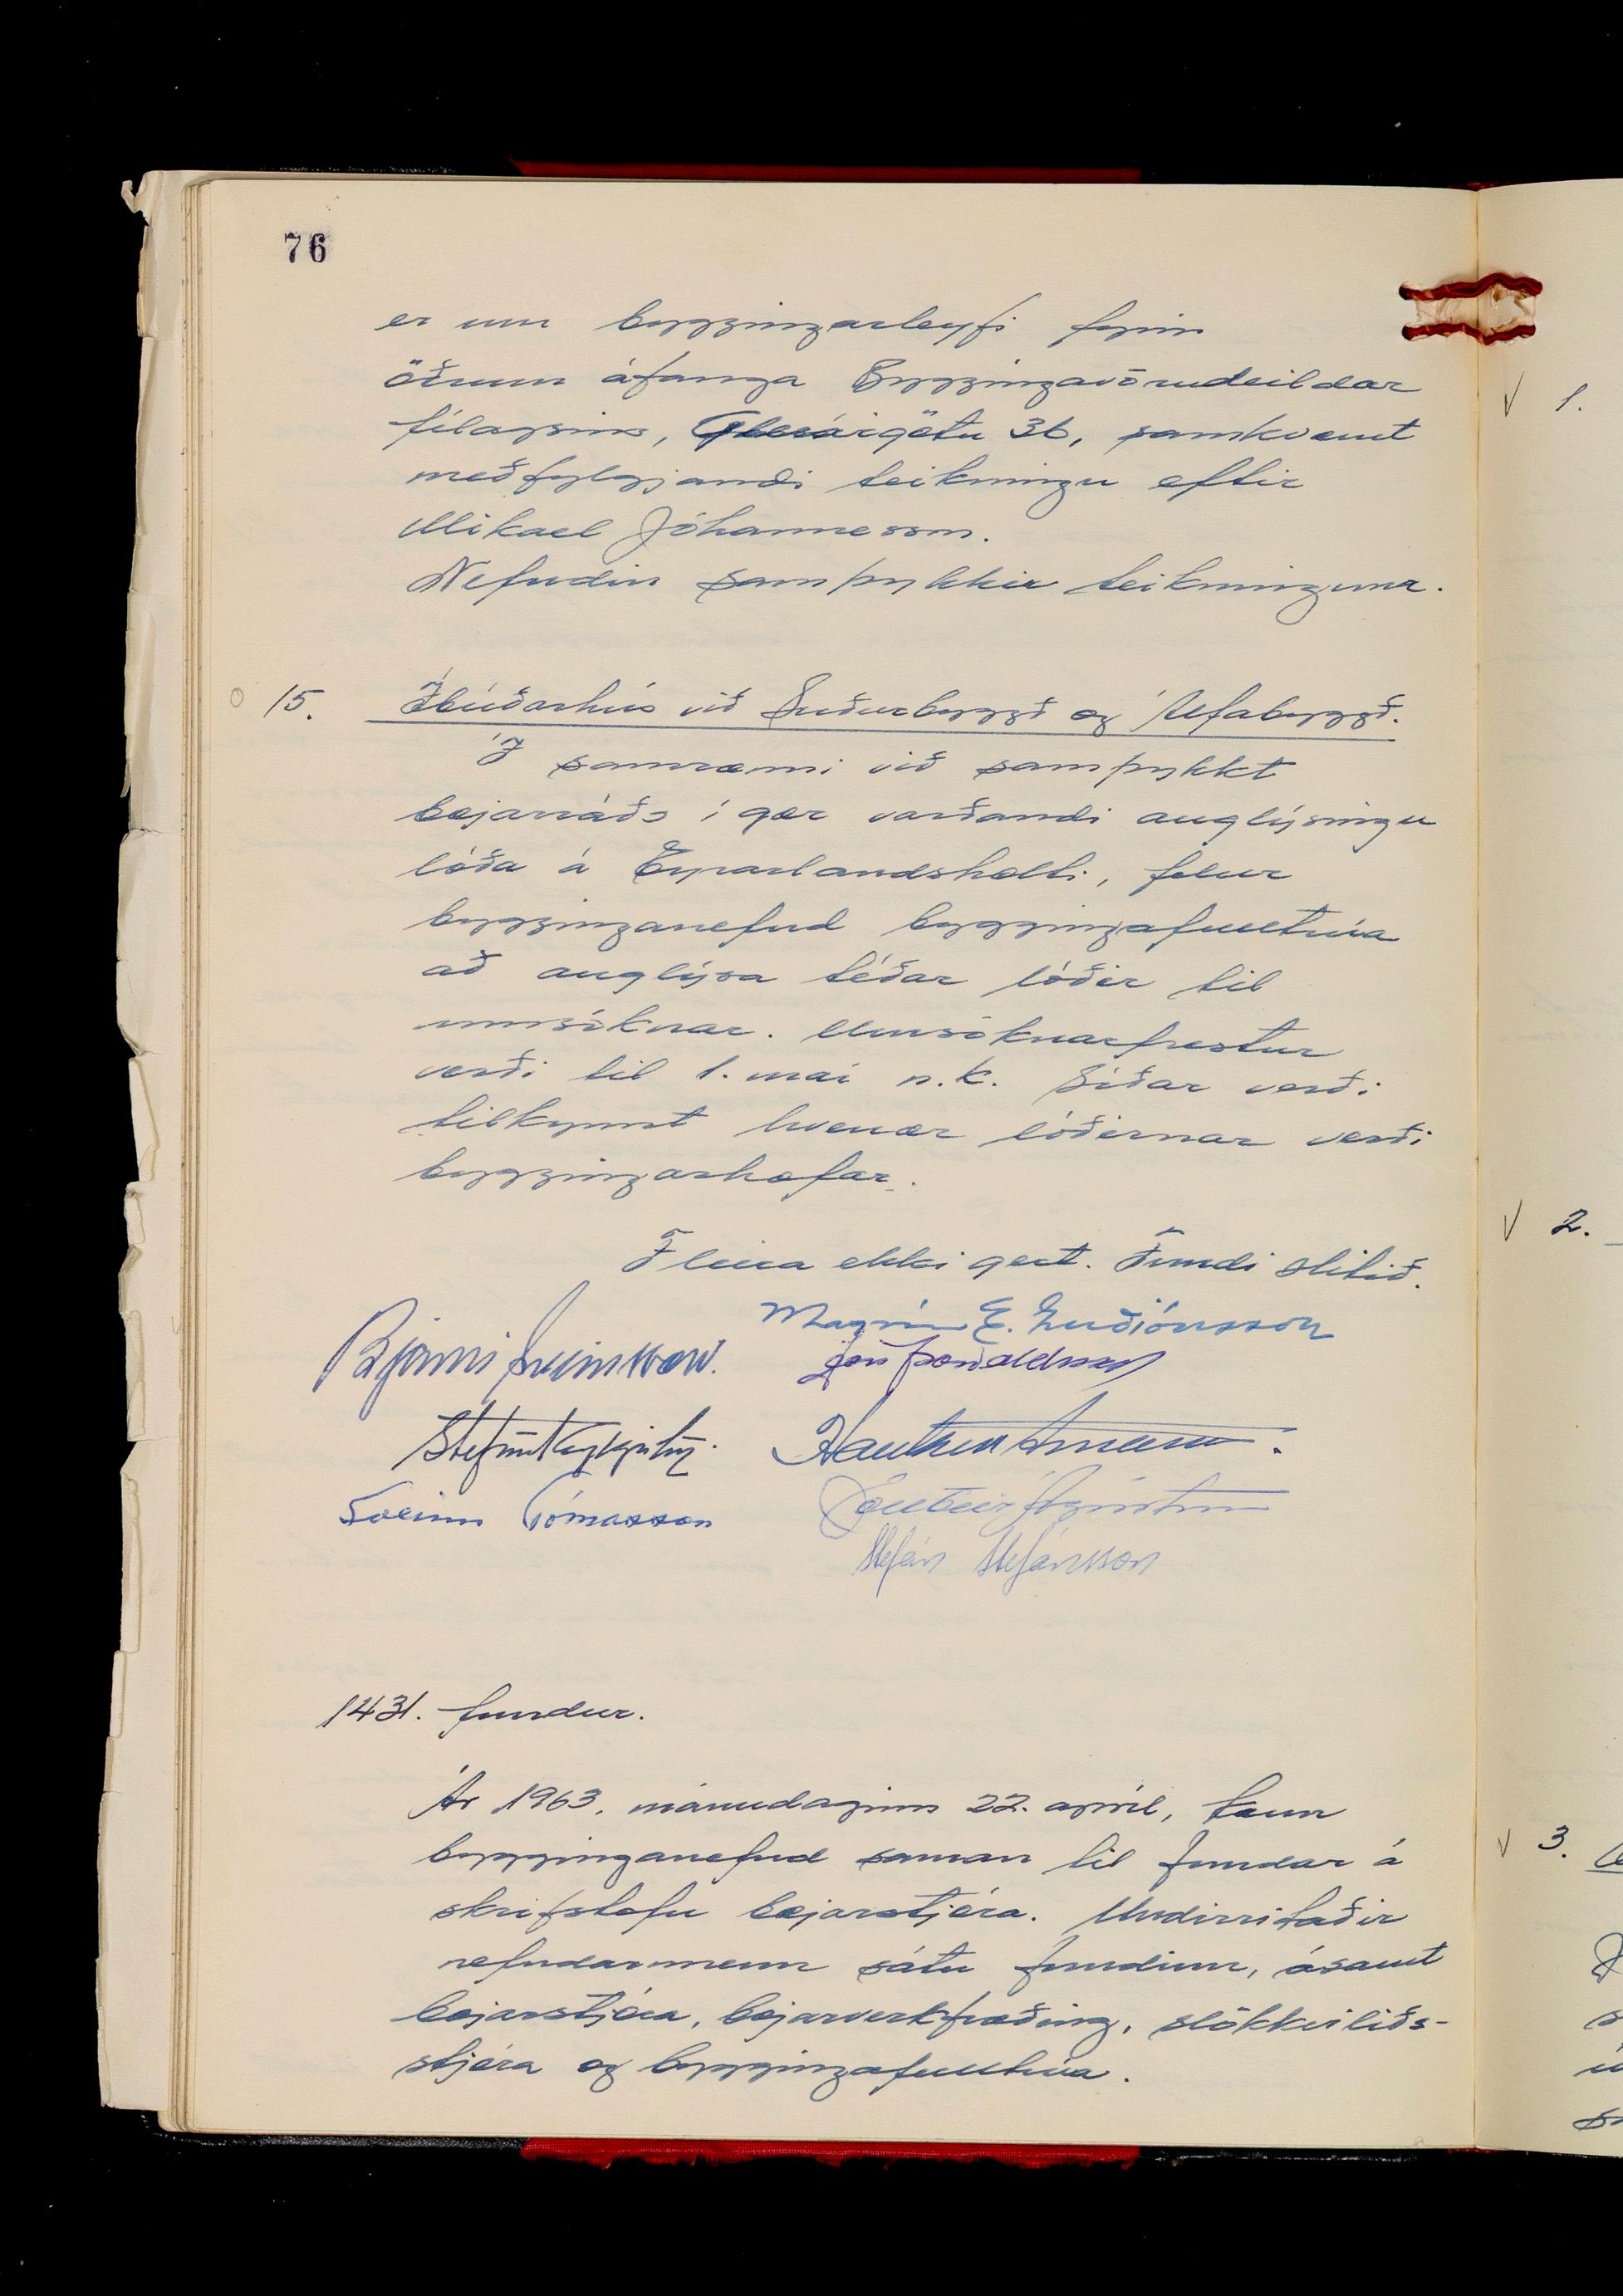 76
er um byggingarleyfi fyrir
öðrum áfanga Byggingavörudeildar
félagsins, Glerárgötu 36, samkvæmt
meðfylgjandi teikningu eftir
Mikael Jóhannesson.
Nefndin samþykkir teikninguna.
15. Íbúðarhús við Suðurbyggð og Álfabyggð.
Í samræmi við samþykkt
bæjarráðs í gær varðandi auglýsingu
lóða á Eyrarlandsholti, felur
bygginganefnd byggingafulltrúa
að auglýsa téðar lóðir til
umsóknar. Umsóknarfrestur
verði til 1. maí n.k. Síðar verði
tilkynnt hvenær lóðirnar verði
byggingarhæfar.
Fleira ekki gert. Fundi slitið.
Magnús E. Guðjónsson
Bjarni Sveinsson. Jón Þorvaldsson
Stefán Reykjalín. Haukur Árnason.
Sveinn Tómasson Ágústsson
Stefán Stefánsson
1431. fundur.
Ár 1963, mánudaginn 22. apríl, kom
bygginganefnd saman til fundar á
skrifstofu bæjarstjóra. Undirritaðir
nefndarmenn sátu fundinn, ásamt
bæjarstjóra, bæjarverkfræðing, slökkviliðs-
stjóra og byggingafulltrúa.
1.
2.
3.